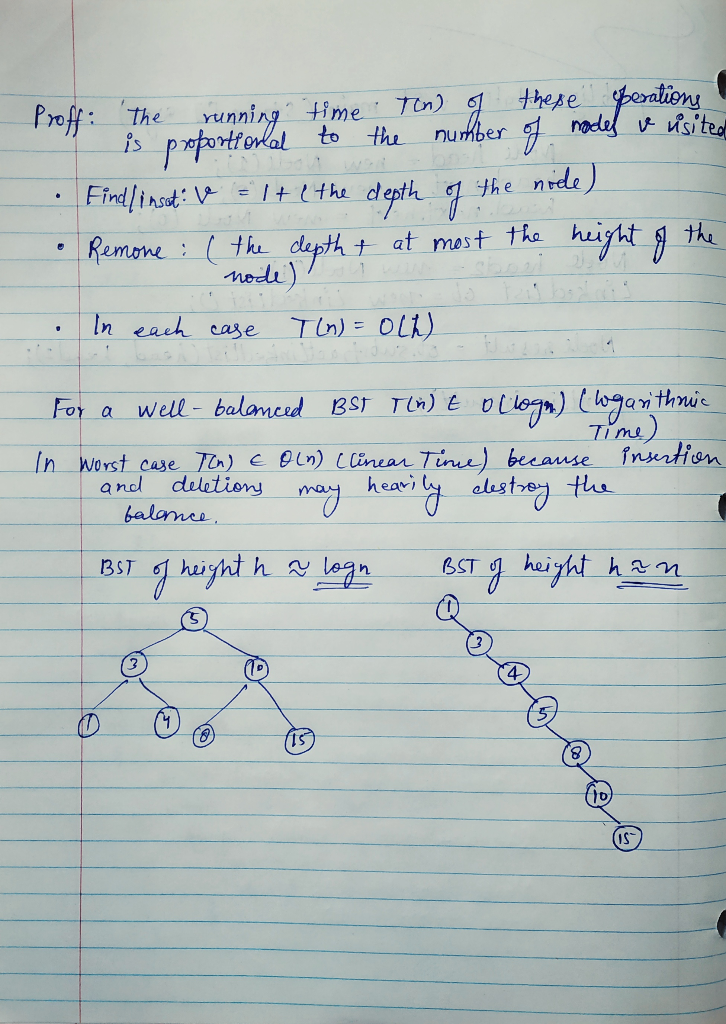 Proff: The running time T(n) of these operations
is proportional to the number of nodes v visited
• Find/insert: v = 1 + (the depth of the node)
• Remove : ( the depth + at most the height of the
node)
• In each case T(n) = O(h)
For a well-balanced BST T(n) ∈ O(logn) (logarithmic
Time)
In Worst case T(n) ∈ Θ(n) (linear Time) because insertion
and deletions may heavily destroy the
balance.
BST of height h ≈ logn BST of height h ≈ n
5
3 10
1 4 8 15
1
3
4
5
8
10
15